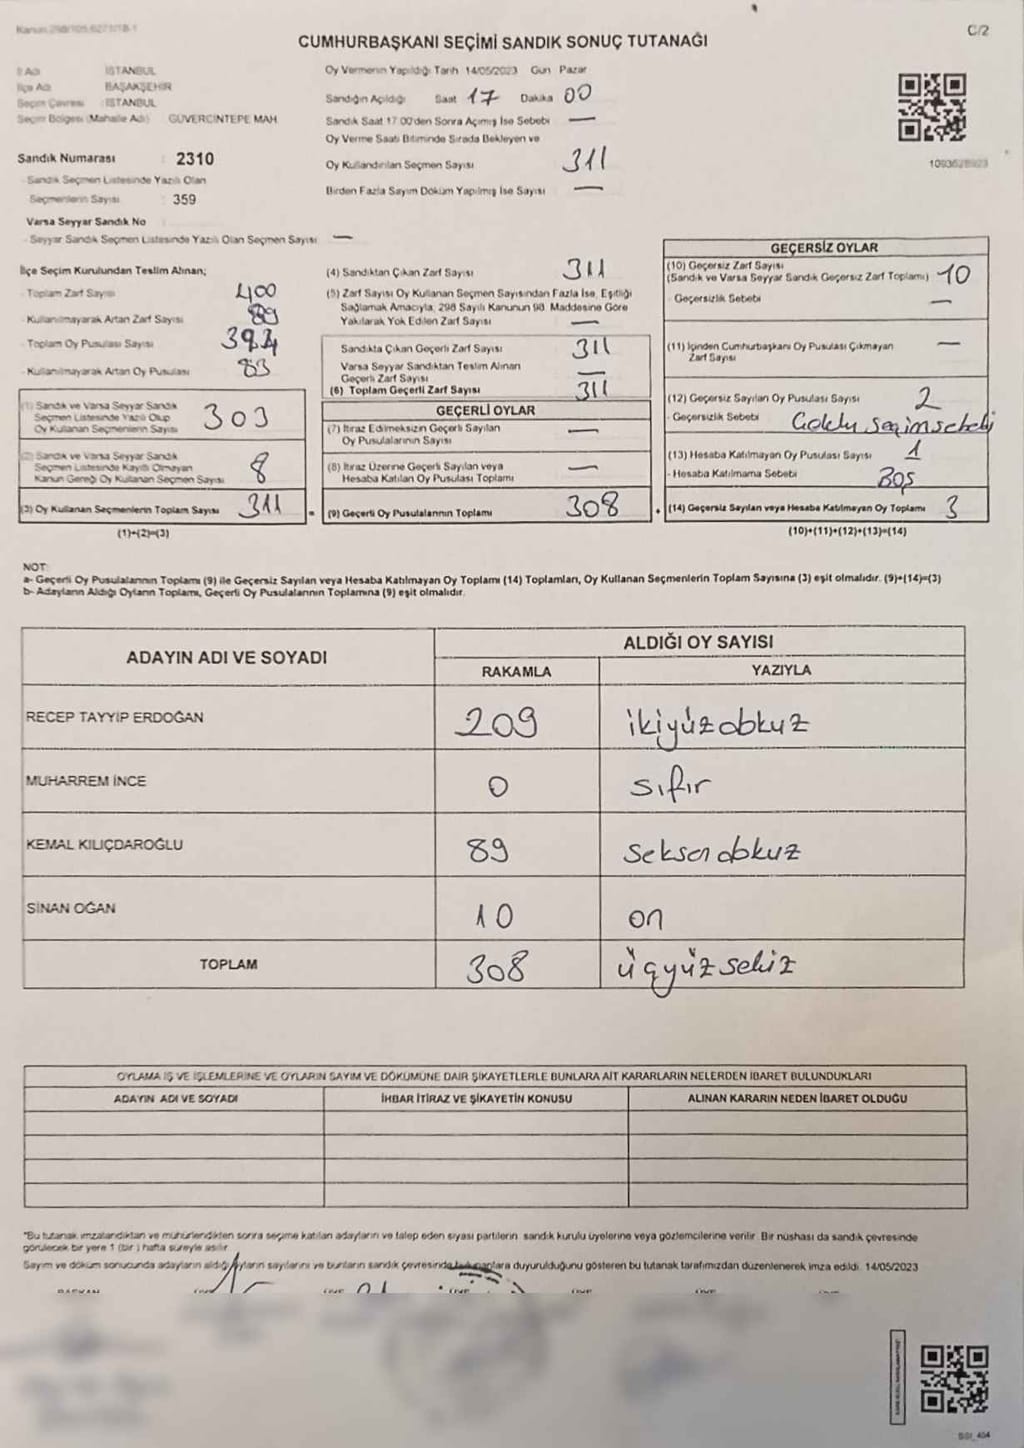 C/2
CUMHURBAŞKANI SEÇİMİ SANDIK SONUÇ TUTANAĞI
İl Adı : İSTANBUL
İlçe Adı : BAŞAKŞEHİR
Seçim Çevresi : İSTANBUL
Seçim Bölgesi (Mahalle Adı) : GÜVERCİNTEPE MAH.
Sandık Numarası : 2310
- Sandık Seçmen Listesinde Yazılı Olan
Seçmenlerin Sayısı : 359
Varsa Seyyar Sandık No
- Seyyar Sandık Seçmen Listesinde Yazılı Olan Seçmen Sayısı: —
Oy Vermenin Yapıldığı Tarih 14/05/2023 Gün Pazar
Sandığın Açıldığı Saat 17 Dakika 00
Sandık Saat 17.00'den Sonra Açımış İse Sebebi —
Oy Verme Saati Bitiminde Sırada Bekleyen ve
Oy Kullandırılan Seçmen Sayısı 311
Birden Fazla Sayım Döküm Yapılmış İse Sayısı —
İlçe Seçim Kurulundan Teslim Alınan;
- Toplam Zarf Sayısı 400
- Kullanılmayarak Artan Zarf Sayısı 89
- Toplam Oy Pusulası Sayısı
- Kullanılmayarak Artan Oy Pusulası 83
(1) Sandık ve Varsa Seyyar Sandık
Seçmen Listesinde Yazılı Olup
Oy Kullanan Seçmenlerin Sayısı 303
(2) Sandık ve Varsa Seyyar Sandık
Seçmen Listesinde Kayıtlı Olmayan
Kanun Gereği Oy Kullanan Seçmen Sayısı 8
(3) Oy Kullanan Seçmenlerin Toplam Sayısı 311
(1)+(2)=(3)
(4) Sandıktan Çıkan Zarf Sayısı 311
(5) Zarf Sayısı Oy Kullanan Seçmen Sayısından Fazla İse, Eşitliği
Sağlamak Amacıyla, 298 Sayılı Kanunun 98. Maddesine Göre
Yakılarak Yok Edilen Zarf Sayısı —
Sandıkta Çıkan Geçerli Zarf Sayısı 311
Varsa Seyyar Sandıktan Teslim Alınan
Geçerli Zarf Sayısı —
(6) Toplam Geçerli Zarf Sayısı 311
GEÇERLİ OYLAR
(7) İtiraz Edilmeksizin Geçerli Sayılan
Oy Pusulalarının Sayısı —
(8) İtiraz Üzerine Geçerli Sayılan veya
Hesaba Katılan Oy Pusulası Toplamı —
= (9) Geçerli Oy Pusulalarının Toplamı 308
GEÇERSİZ OYLAR
(10) Geçersiz Zarf Sayısı
(Sandık ve Varsa Seyyar Sandık Geçersiz Zarf Toplamı) 10
- Geçersizlik Sebebi —
(11) İçinden Cumhurbaşkanı Oy Pusulası Çıkmayan
Zarf Sayısı —
(12) Geçersiz Sayılan Oy Pusulası Sayısı 2
- Geçersizlik Sebebi
(13) Hesaba Katılmayan Oy Pusulası Sayısı 1
- Hesaba Katılmama Sebebi Boş
+ (14) Geçersiz Sayılan veya Hesaba Katılmayan Oy Toplamı 3
(10)+(11)+(12)+(13)=(14)
NOT:
a- Geçerli Oy Pusulalarının Toplamı (9) ile Geçersiz Sayılan veya Hesaba Katılmayan Oy Toplamı (14) Toplamları, Oy Kullanan Seçmenlerin Toplam Sayısına (3) eşit olmalıdır. (9)+(14)=(3)
b- Adayların Aldığı Oyların Toplamı, Geçerli Oy Pusulalarının Toplamına (9) eşit olmalıdır.
ADAYIN ADI VE SOYADI
ALDIĞI OY SAYISI
RAKAMLA YAZIYLA
RECEP TAYYİP ERDOĞAN 209 ikiyüzdokuz
MUHARREM İNCE 0 sıfır
KEMAL KILIÇDAROĞLU 89 seksendokuz
SİNAN OĞAN 10 on
TOPLAM 308 üçyüzsekiz
OYLAMA İŞ VE İŞLEMLERİNE VE OYLARIN SAYIM VE DÖKÜMÜNE DAİR ŞİKAYETLERLE BUNLARA AİT KARARLARIN NELERDEN İBARET BULUNDUKLARI
ADAYIN ADI VE SOYADI İHBAR İTİRAZ VE ŞİKAYETİN KONUSU ALINAN KARARIN NEDEN İBARET OLDUĞU
*Bu tutanak imzalandıktan ve mühürlendikten sonra seçime katılan adayların ve talep eden siyasi partilerin sandık kurulu üyelerine veya gözlemcilerine verilir. Bir nüshası da sandık çevresinde
görülecek bir yere 1 (bir) hafta süreyle asılır.
Sayım ve döküm sonucunda adayların aldığı oyların sayılarını ve bunların sandık çevresinde bulunanlara duyurulduğunu gösteren bu tutanak tarafımızdan düzenlenerek imza edildi. 14/05/2023